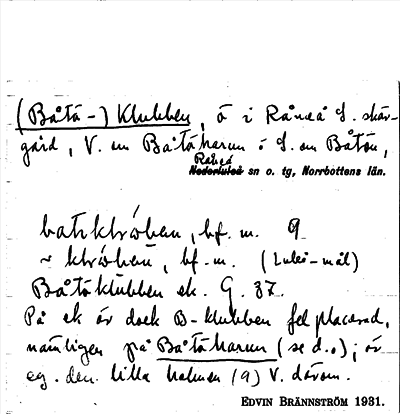 (Båtö-) Klubben, ö i Råneå s. skär-
gård, V. om Båtöharun ö S. om Båtön,
Råneå
Nederluleå sn o. tg, Norrbottens län.
bf. m. 9
~ bf. m. (Luleå-mål)
Båtöklubben ek. G. 37.
På ek är dock B-klubben fel placerad,
nämligen på Båtöharun (se d.o.); är
eg. den lilla holmen (9) V. därom.
EDVIN BRÄNNSTRÖM 1931.